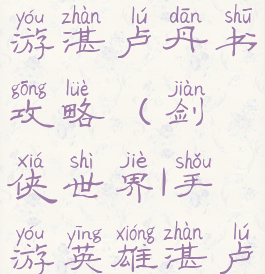 yóu zhàn lú dān shū
游湛卢丹书
gōng lüè jiàn
攻略（剑
xiá shì jiè shǒu
侠世界|手
yóu yīng xióng zhàn lú
游英雄湛卢